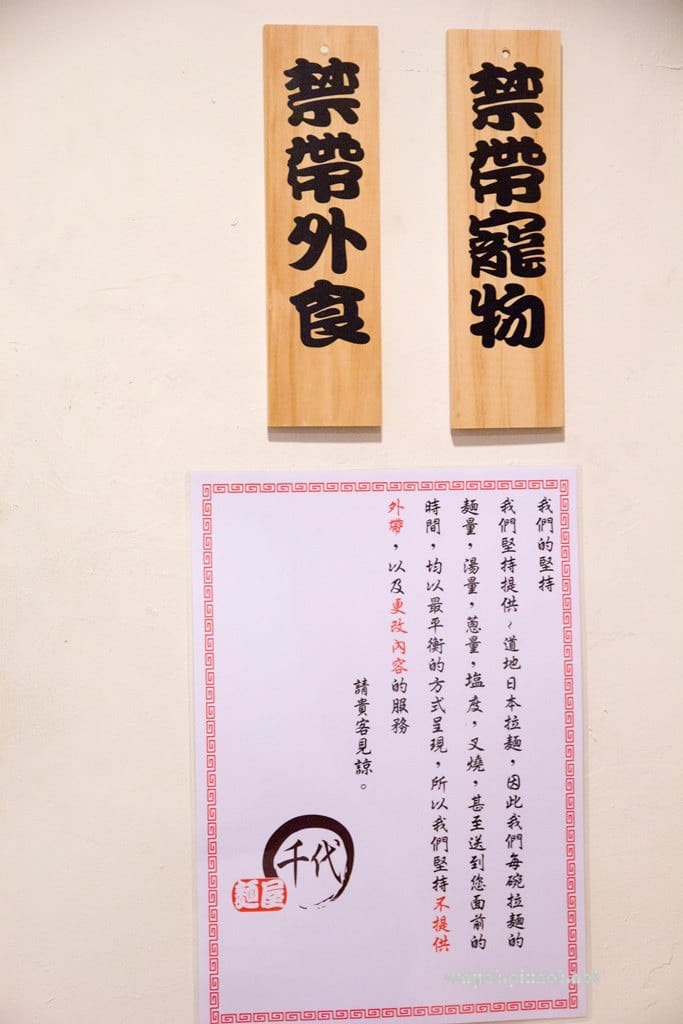 禁帶寵物
禁帶外食
我們的堅持
我們堅持提供～道地日本拉麵，因此我們每碗拉麵的
麵量，湯量，蔥量，塩度，叉燒，甚至送到您面前的
時間，均以最平衡的方式呈現，所以我們堅持不提供
外帶，以及更改內容的服務
請貴客見諒。
千代
麵屋